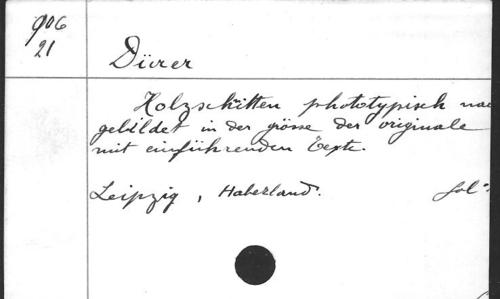 906
21
Dürer
Holzschitten phototypisch nac
gebildet in der grösse der originale
mit einführenden Texte.
Leipzig, Haberland. fol°